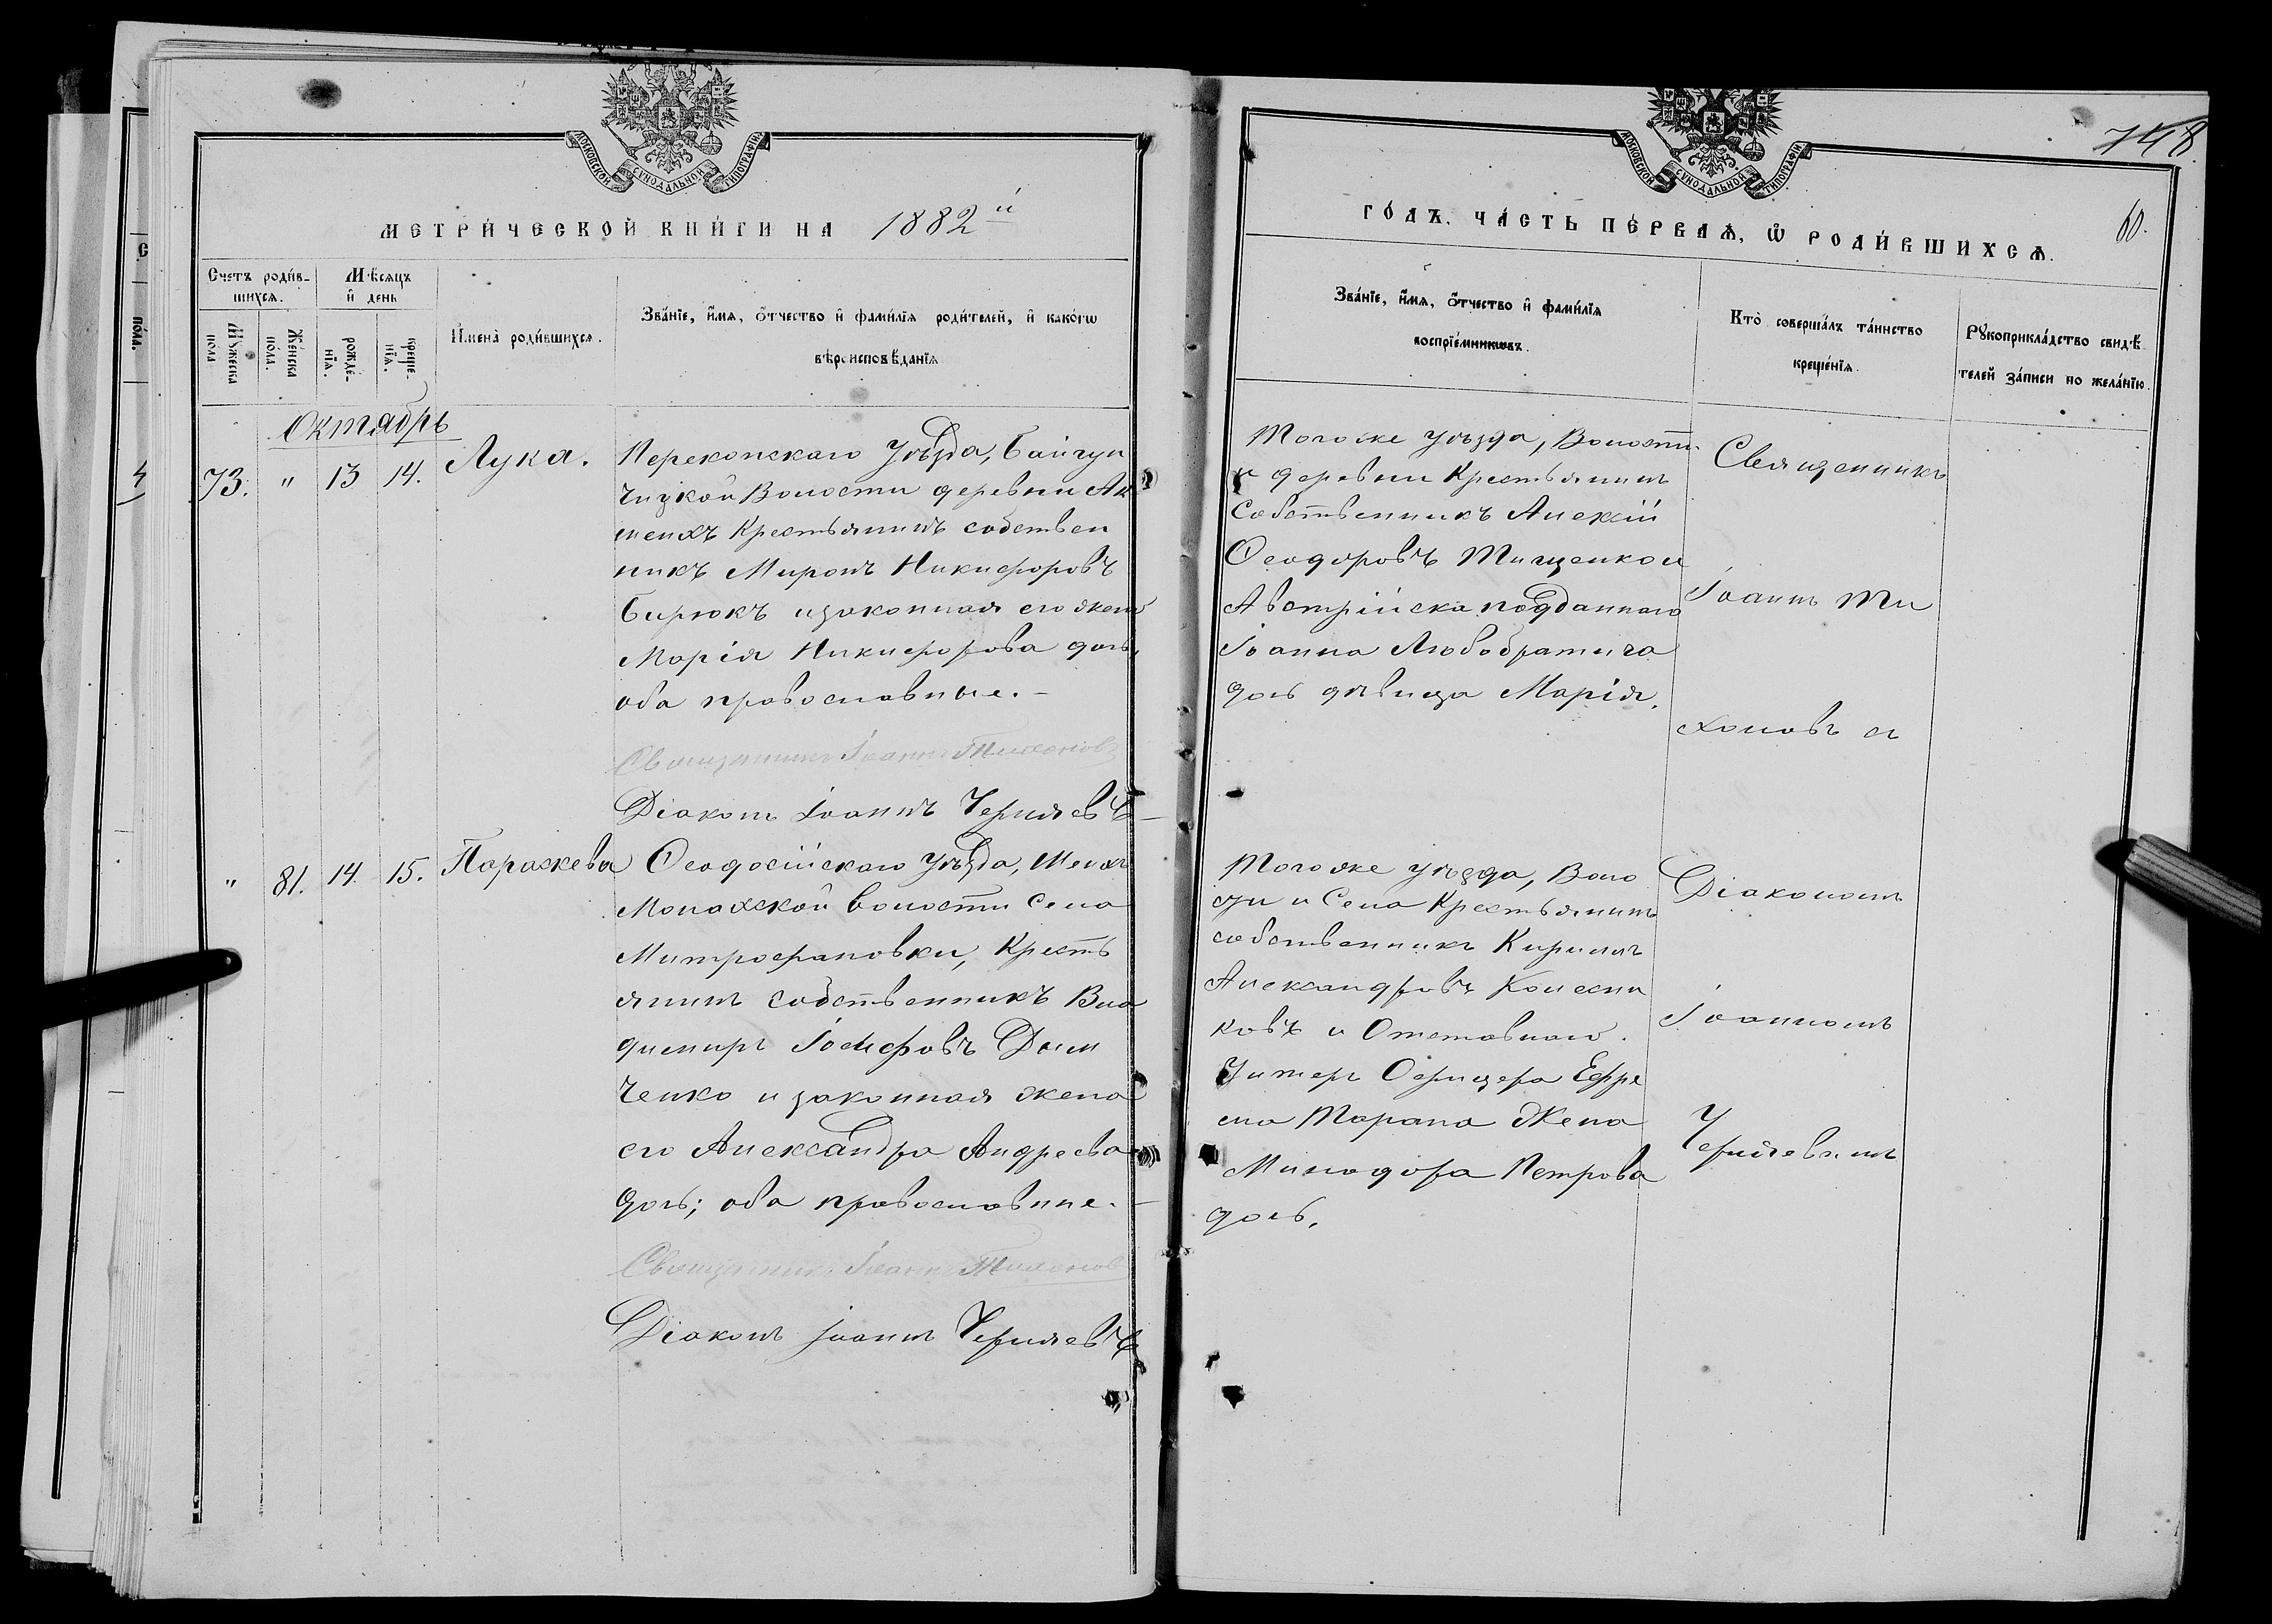 МОСКОВСКОЙ СѴНОДАЛЬНОЙ ТИПОГРАФІИ
МЕТРИ́ЧЕСКОЙ КНИ́ГИ НА 1882й
Счетъ роди́в-
шихсѧ.
Мѣ́сѧцъ
и҆ день
Мꙋ́жеска
по́ла
Же́нска
по́ла.
рожде́-
нїѧ.
креще́-
нїѧ.
И҆мена̀ роди́вшихсѧ.
Зва́нїе, и҆́мѧ, ѻ҆́тчество и҆ фами́лїѧ роди́телей, и҆ како́гѡ
вѣроисповѣ́данїѧ
Октябрь
73. " 13 14. Лука.
Перекопскаго Уѣзда, Байгун
чицкой Волости деревни Ак
шеихъ Крестьянинъ собствен
никъ Миронъ Никифоровъ
Бирюкъ изаконная его жена
Марія Никифорова дочь,
оба православные.-
Священникъ Іоаннъ Тихоновъ
Діаконъ Іоаннъ Черняевъ
" 81. 14. 15. Параскева
Ѳеодосійскаго Уѣзда,
Монахской волости Села
Митрофановки, Кресть
янинъ собственникъ Вла
димиръ Іосифовъ Дьем
ченко и законная жена
его Александра Андреева
дочь; оба православные.-
Священникъ Іоаннъ Тихоновъ
Діаконъ Іоаннъ Черняевъ
748
МОСКОВСКОЙ СѴНОДАЛЬНОЙ ТИПОГРАФІИ
ГО́ДЪ. ЧА́СТЬ ПЕ́РВАѦ, Ѽ РОДИ́ВШИХСѦ.
60.
Зва́нїе, и҆́мѧ, ѻ҆́тчество и҆ фами́лїѧ
воспрїе́мникѡвъ.
Кто̀ соверша́лъ та́инство
креще́нїѧ.
Рꙋкоприкла́дство свидѣ́-
телей за́писи по жела́нїю.
Тогоже уѣзда, Волости
и деревни Крестьянинъ
Собственникъ Алексій
Ѳеодоровъ Тищенко и
Австрійска подданнаго
Іоанна Любобратича
дочь дѣвица Марія.
Священникъ
Іоаннъ Ти
хоновъ съ
Тогоже уѣзда, Воло
сти и Села Крестьянинъ
собственникъ Кириллъ
Александровъ Колесни
ковъ и Отставнаго
Унтеръ Офицера Ефре
ма Тарана Жена
Минодора Петрова
дочь.
Діакономъ
Іоанномъ
Черняевымъ